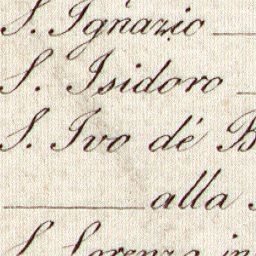 S. Ignazio
S. Isidoro
S. Ivo dé B
alla
S. Lorenzo in